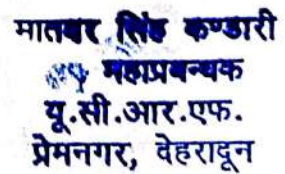 मातबर सिंह कण्डारी
महाप्रबन्धक
यू.सी.आर.एफ.
प्रेमनगर, देहरादून